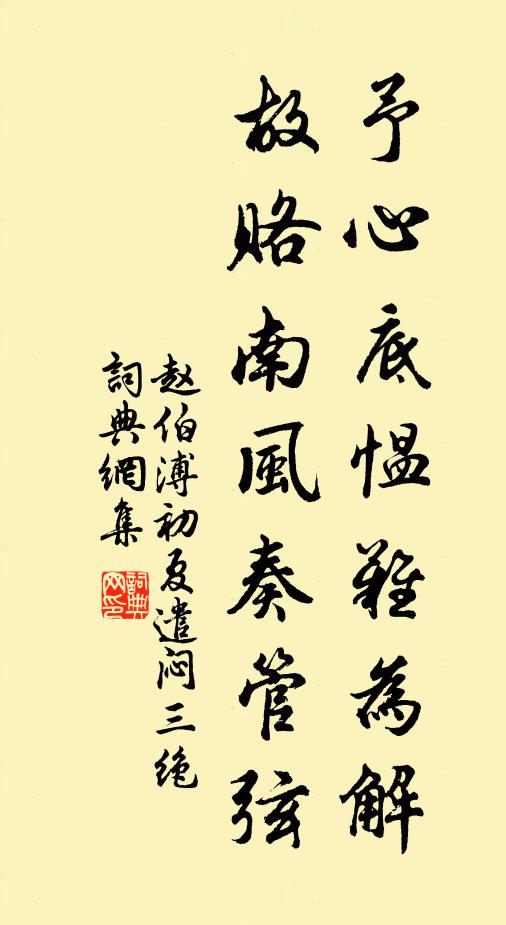 予心底愠難為解
故賂南風奏管弦
赵伯溥初夏遣闷三绝
詞典網集
詞典网印